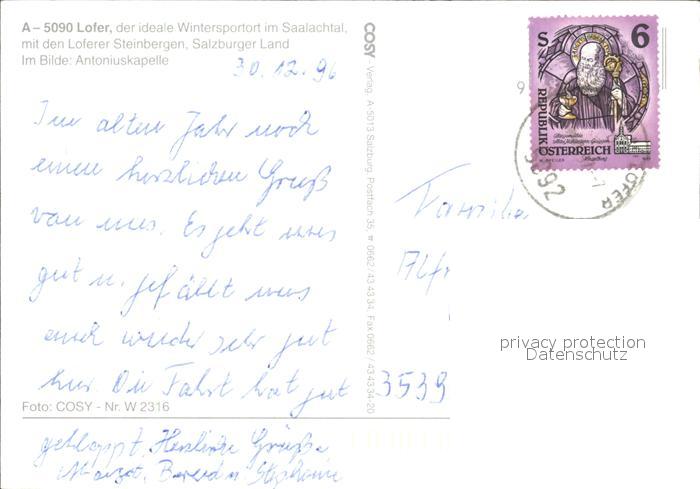 A – 5090 Lofer, der ideale Wintersportort im Saalachtal,
mit den Loferer Steinbergen, Salzburger Land
Im Bilde: Antoniuskapelle
30.12.96
Im alten Jahr noch
einen herzlichen Gruß
von uns. Es geht uns
gut u. gefällt uns
auch wieder sehr gut
hier. Die Fahrt hat gut
geklappt. Herzliche Grüße
Margot, Bernd u. Stephanie
Foto: COSY - Nr. W 2316
COSY Verlag, A 5013 Salzburg, Postfach 35, ☎ 0662/43 43 34, Fax 0662/43 43 34-20
S 6
REPUBLIK
ÖSTERREICH
5092
LOFER
Familie
Alfr
3539
privacy protection
Datenschutz